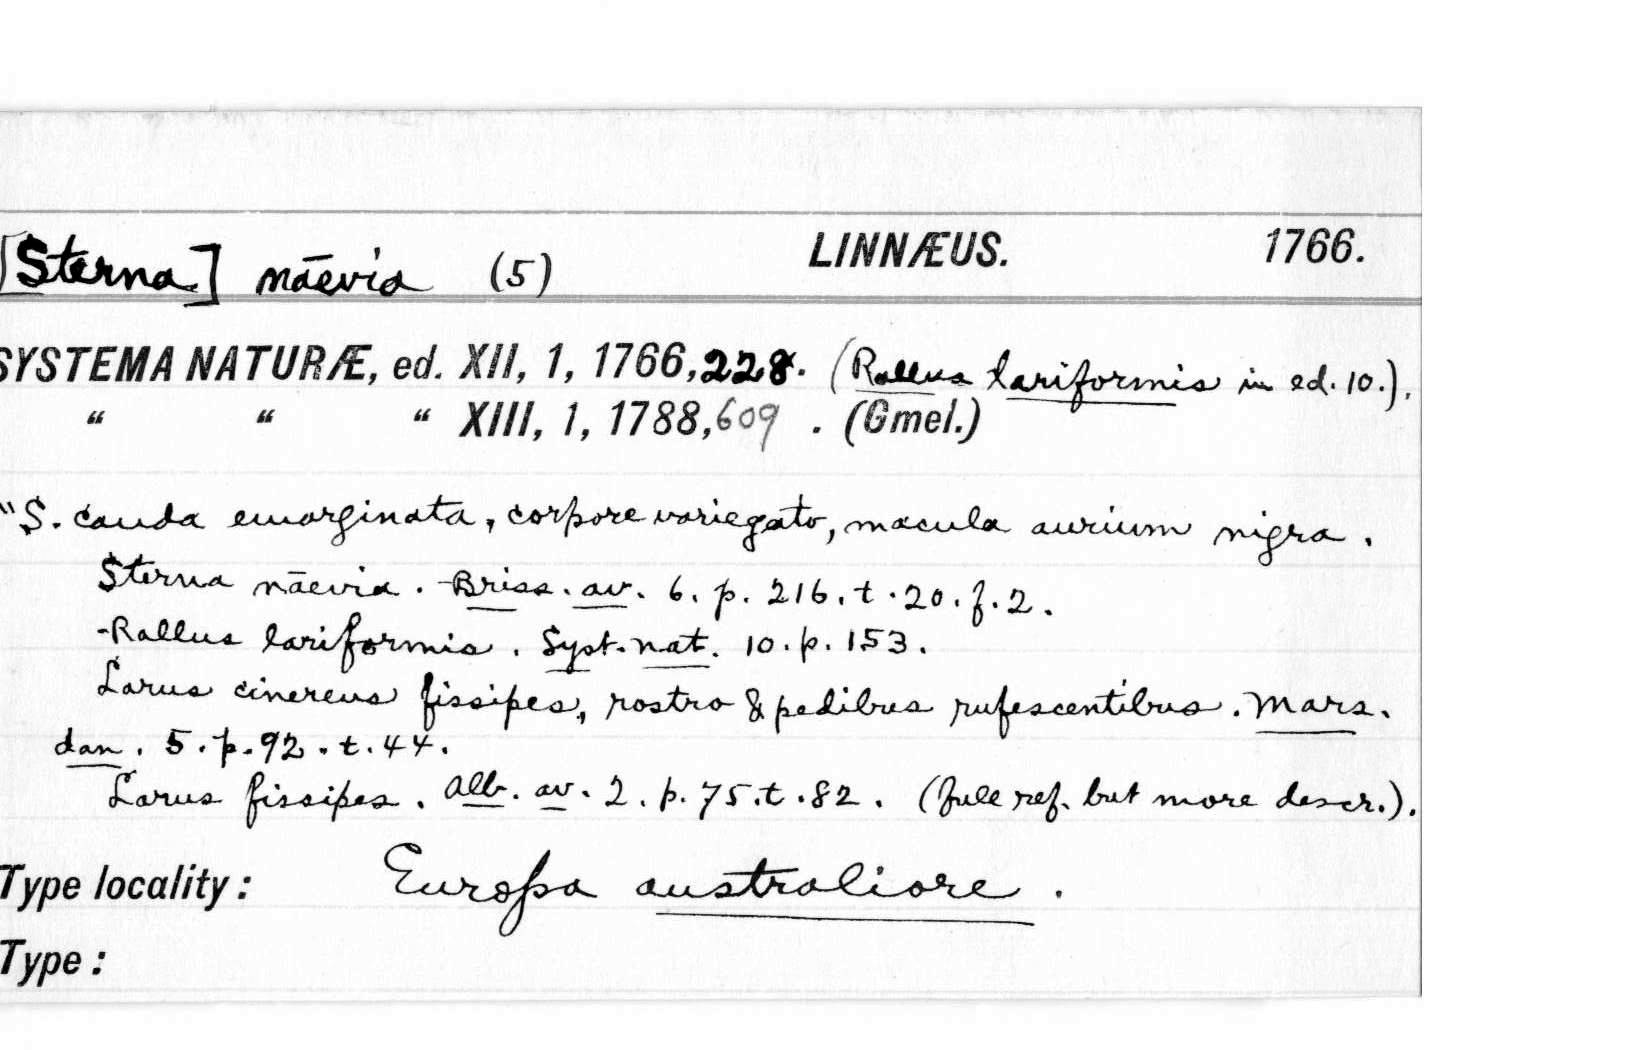 [Sterna] nāevia (5) LINNÆUS. 1766.
SYSTEMA NATURÆ, ed. XII, 1, 1766, 228. (Rallus lariformis in ed. 10.).
" " " XIII, 1, 1788, 609 . (Gmel.)
"S. cauda emarginata, corpore variegato, macula aurium nigra.
Sterna nāevia. Briss. av. 6. p. 216. t. 20. f. 2.
Rallus lariformis. Syst. nat. 10. p. 153.
Larus cinereus fissipes, rostro & pedibus rufescentibus. Mars.
dan. 5. p. 92. t. 44.
Larus fissipes. Alb. av. 2. p. 75. t. 82. (full ref. but more descr.).
Type locality: Europa australiore.
Type: